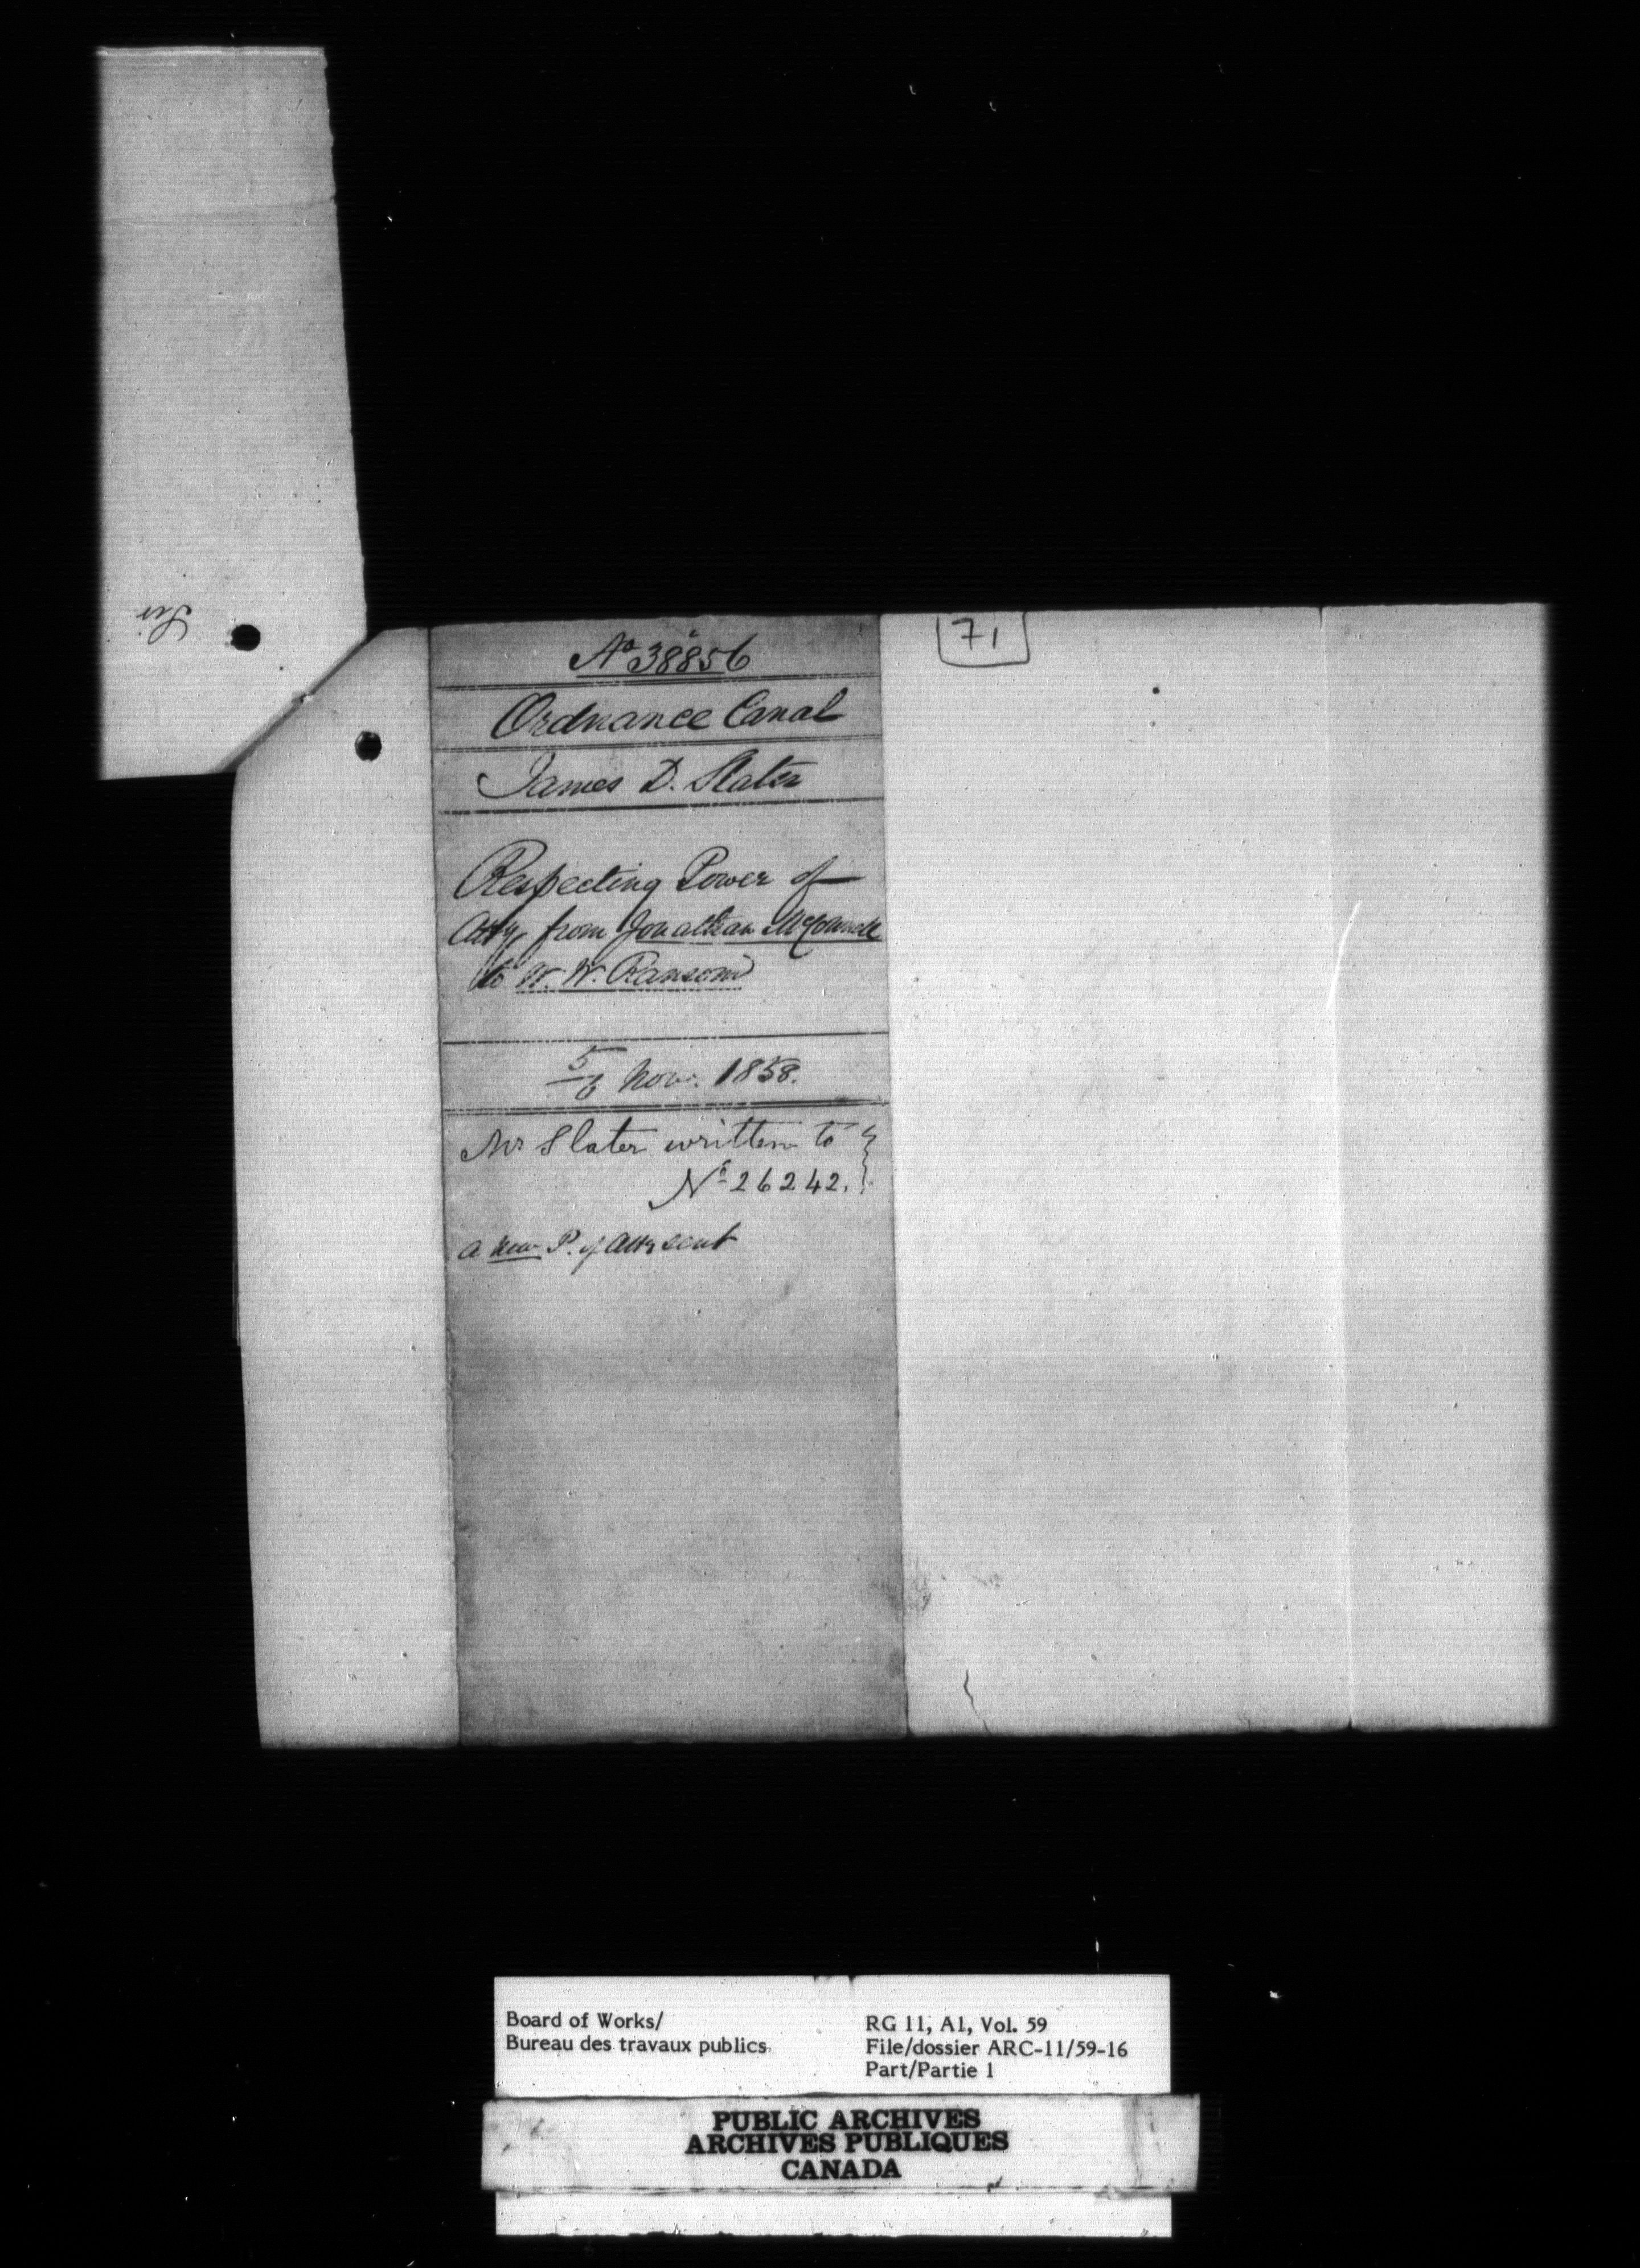 71
No 38856
Ordnance Canal
James D. Slater
Respecting Power of
Atty from Jonathan McConnell
to W. W. Ransom
5/6 Nov. 1858.
Mr Slater written to
No 26242.
a new P. of Atty sent
Board of Works/
Bureau des travaux publics
RG 11, A1, Vol. 59
File/dossier ARC-11/59-16
Part/Partie 1
PUBLIC ARCHIVES
ARCHIVES PUBLIQUES
CANADA